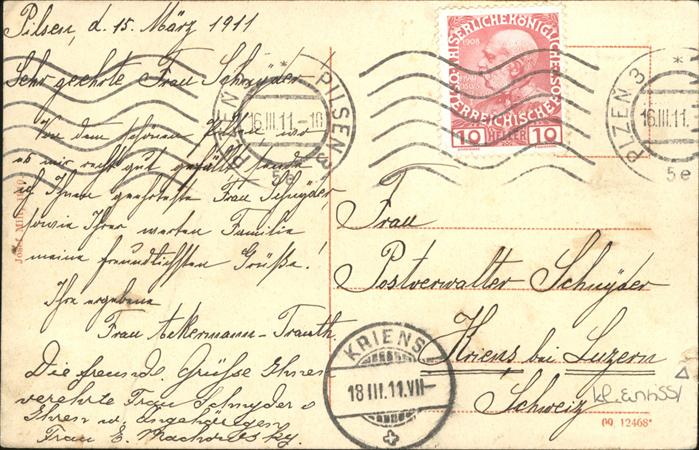 Pilsen, d. 15. März 1911
Sehr geehrte Frau Schnyder
Von dem schönen Pilsen wo
es mir recht gut gefällt sende
ich Ihnen geehrteste Frau Schnyder
sowie Ihrer werten Familie
meine freundlichsten Grüße!
Ihre ergebene
Frau Ackermann-Trauth.
Die freundl. Grüße Ihnen
verehrte Frau Schnyder u
Ihren w. Angehörigen
Frau E.
KAISERLICHE KÖNIGLICHE
ÖSTERREICHISCHE POST
1908
10 HELLER 10
PLZEN PILSEN 3
16.III.11.-10
5e
PLZEN 3
16.III.11
5e
Frau
Postverwalter Schnyder
Kriens bei Luzern
Schweiz
KRIENS
18 III.11.VII-
DQ 12468*